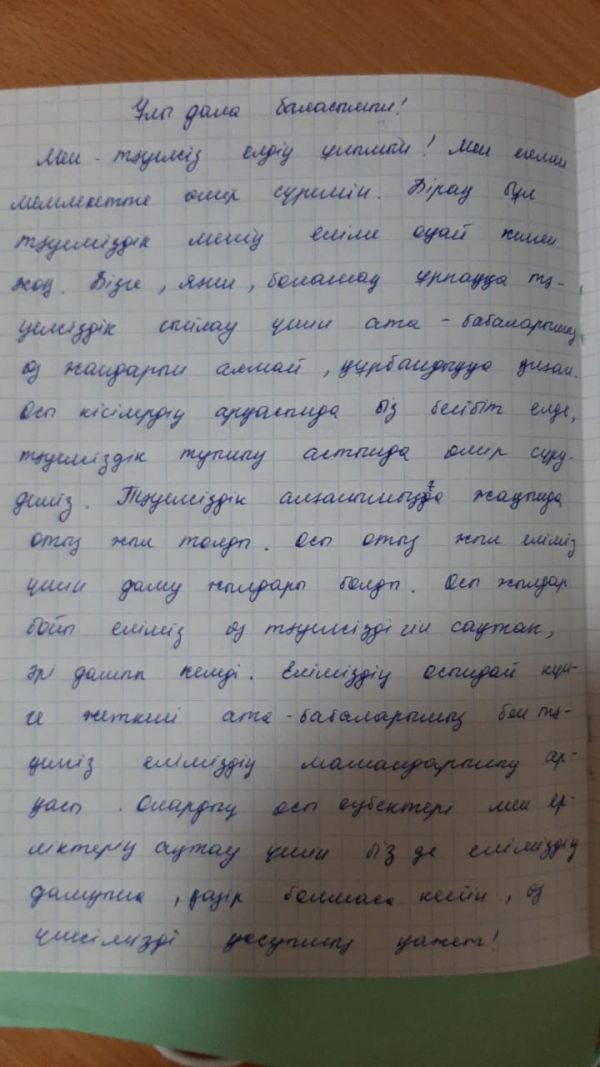 Ұлы дала баласымын!
Мен - тәуелсіз елдің ұлымын! Мен
мемлекетте өмір сүремін. Бірақ бұл
тәуелсіздік менің еліме оңай келген
жоқ. Бізге, яғни, болашақ ұрпаққа тә-
уелсіздік сыйлау үшін ата - бабаларымыз
өз жандарын аямай, құрбандыққа қиған.
Осы кісілердің арқасында біз бейбіт елде,
тәуелсіздік туының астында өмір сүру-
деміз. Тәуелсіздік алғанымызға жақында
отыз жыл толды. Осы отыз жыл еліміз
үшін даму жылдары болды. Осы жылдар
бойы еліміз өз тәуелсіздігін сақтап,
әрі дамып келді. Еліміздің осындай күн-
ге жеткені ата - бабаларымыз бен тә-
уелсіз еліміздің мамандарының ар-
қасы. Олардың осы еңбектері мен ер-
ліктерін ақтау үшін біз де еліміздің
дамуына, қазір болмаса кейін, өз
үлесімізді қосуымыз қажет!